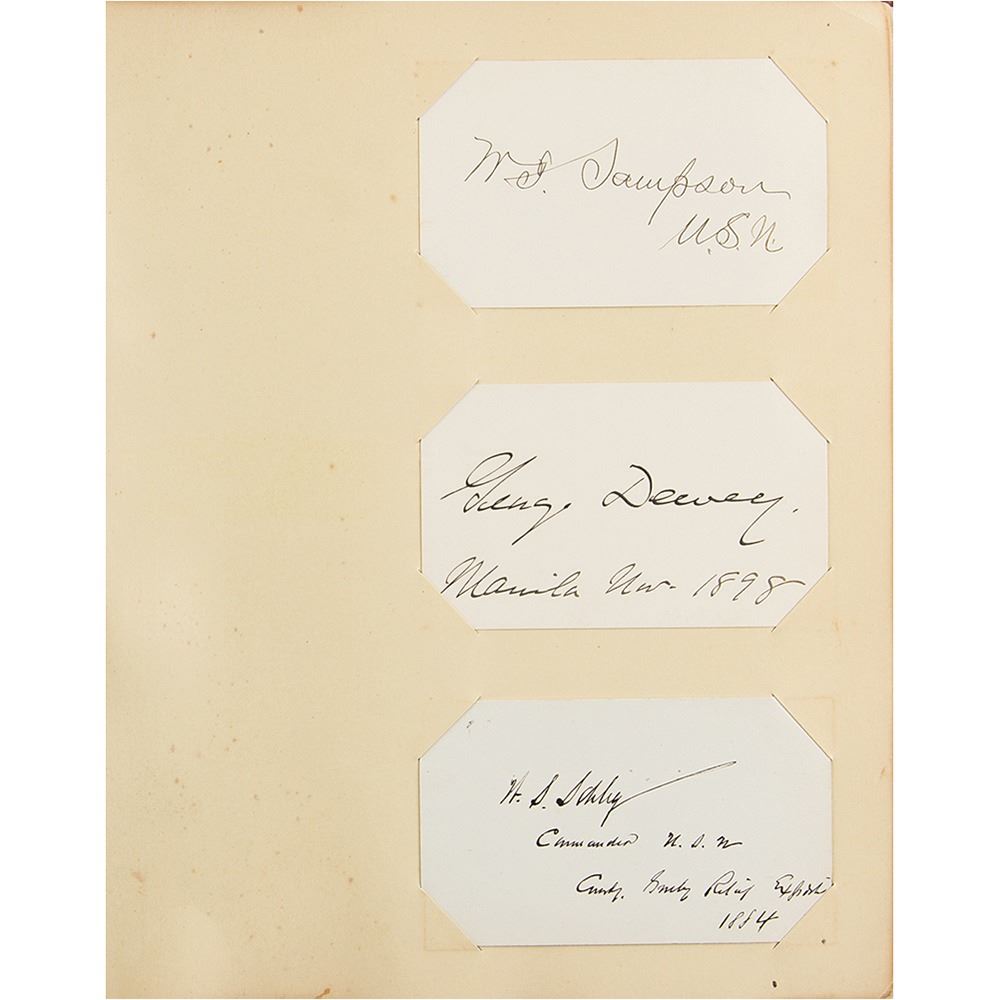 W. T. Sampson
U.S.N.
George Dewey.
Manila Nov. 1898
W. S. Schley
Commander U. S. N
Comdg. Greely Relief Expedition
1884